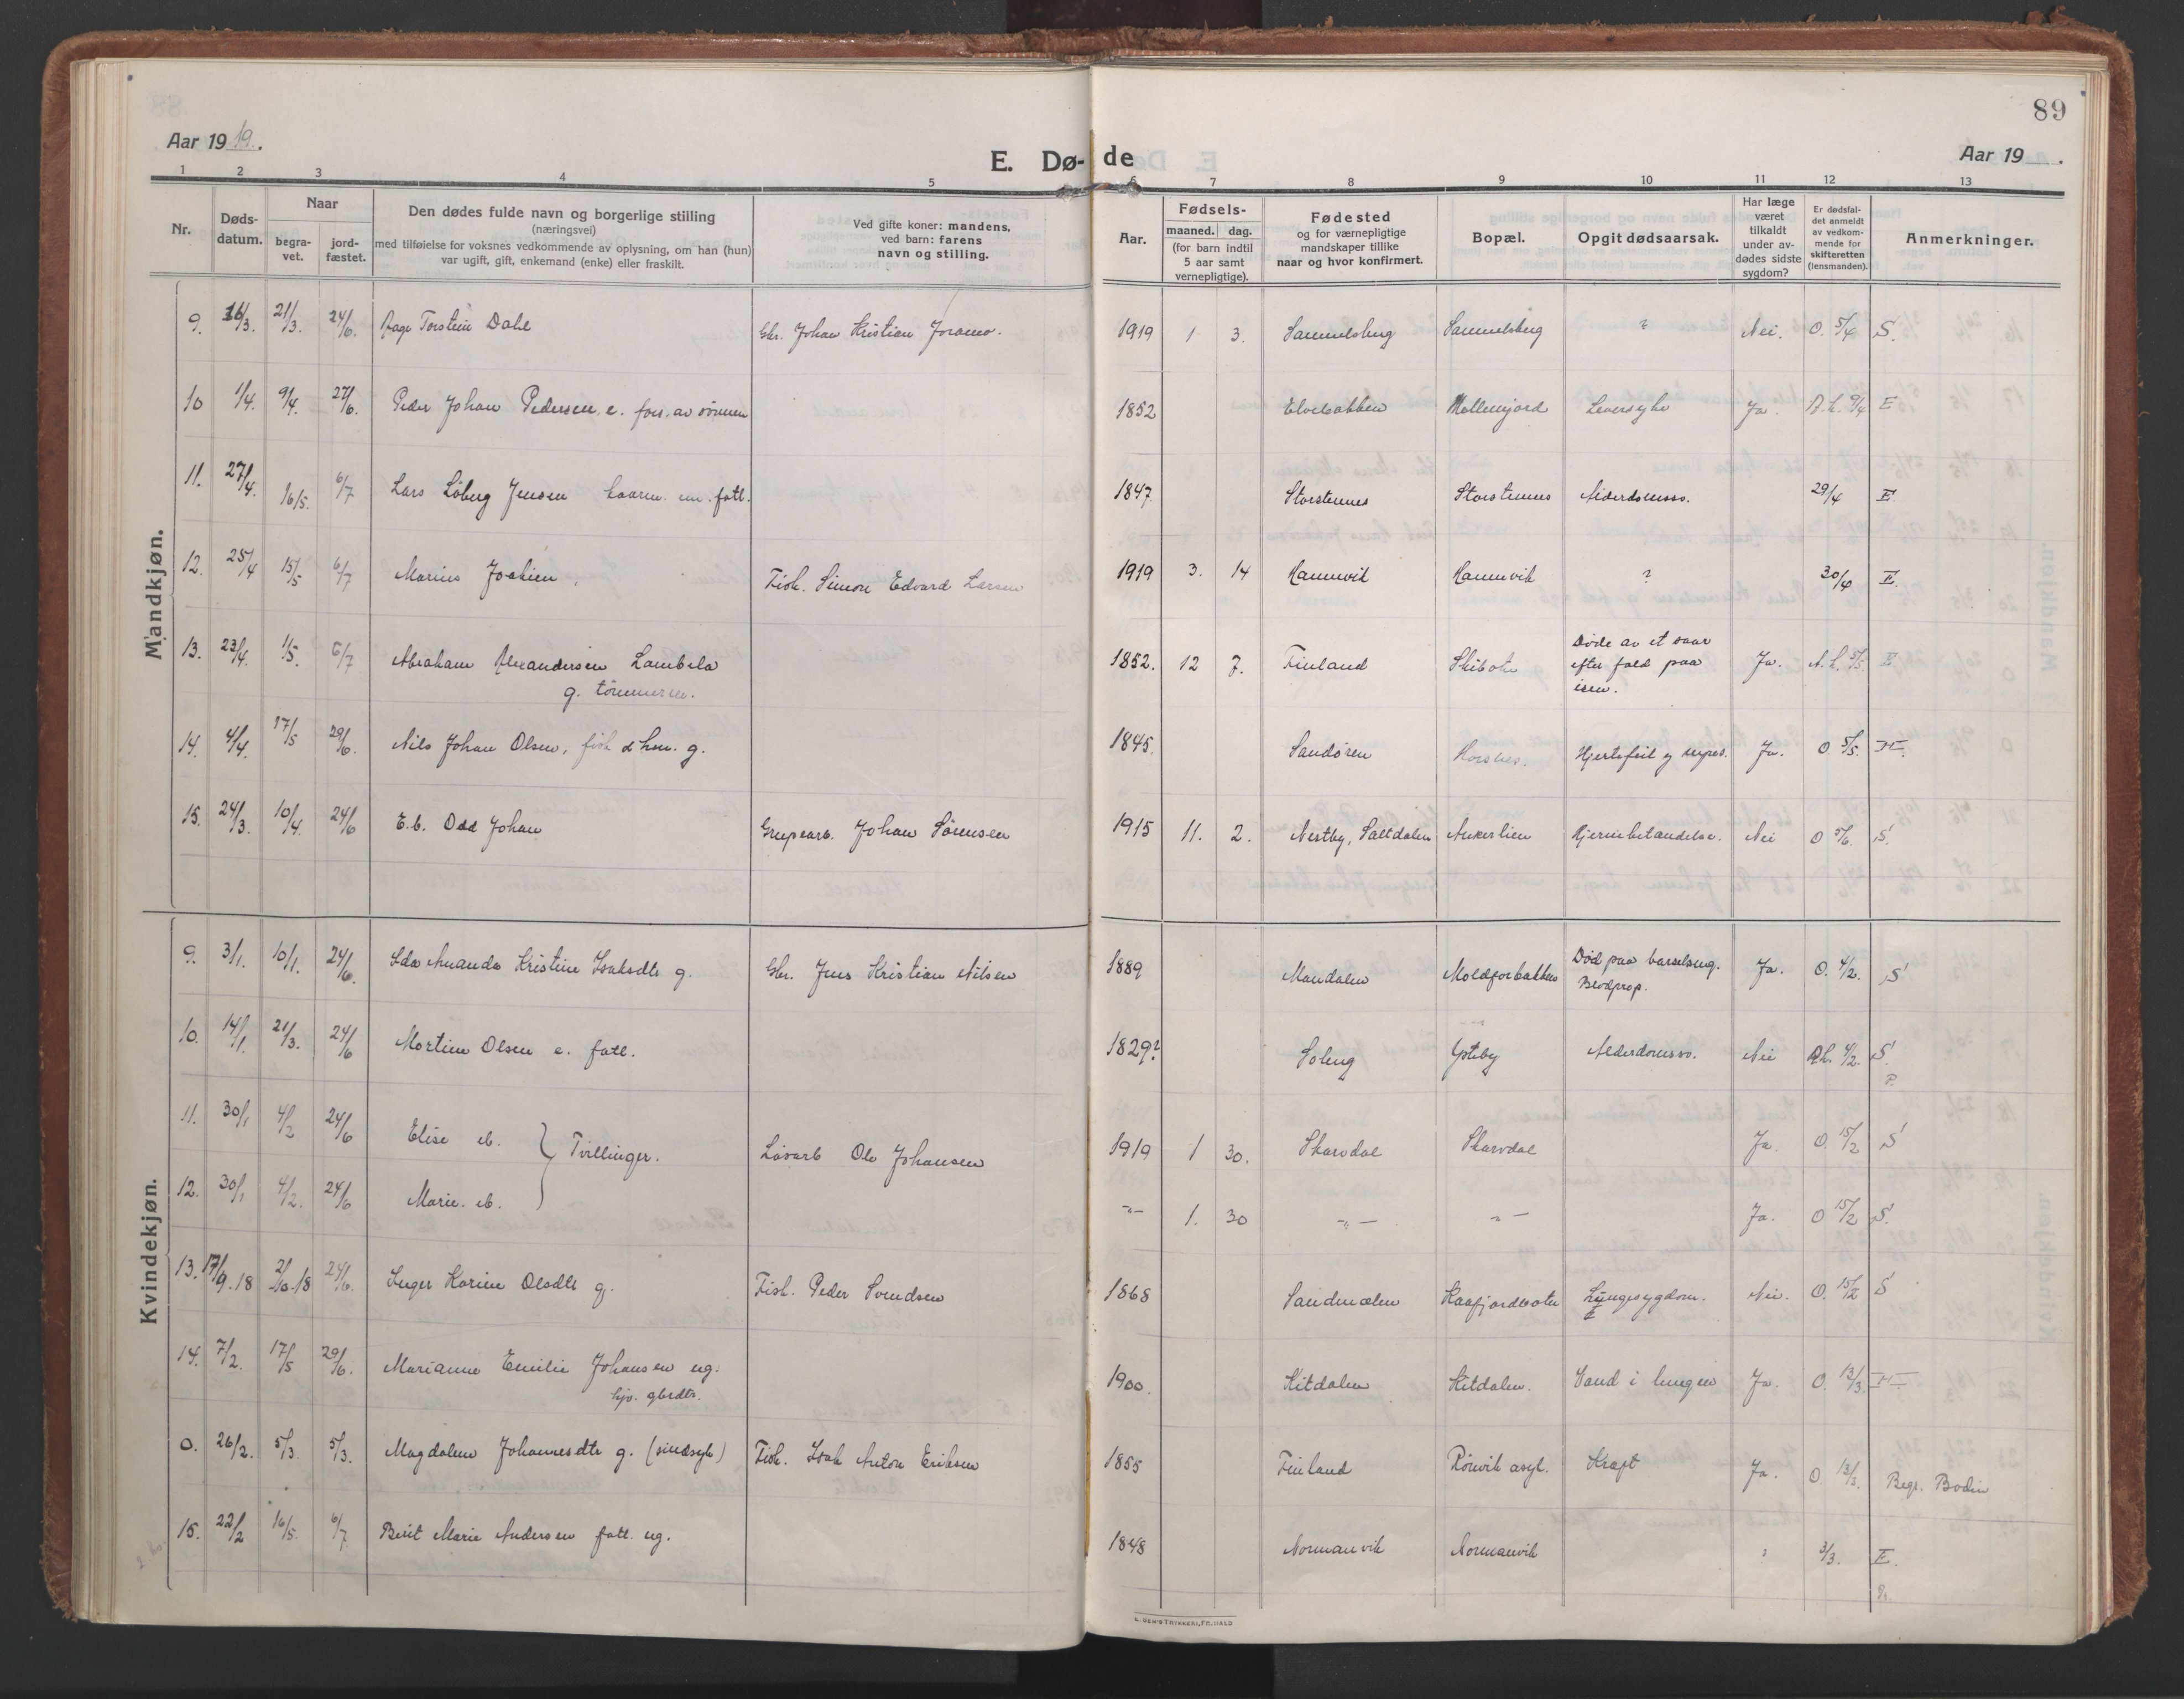 89
Aar 1919.
E. Dø-de
Aar 19 .
1 2 3 4 5 6 7 8 9 10 11 12 13
Nr.
Døds-
datum.
Naar
begra-
vet.
jord-
fæstet.
Den dødes fulde navn og borgerlige stilling
(næringsvei)
med tilføielse for voksnes vedkommende av oplysning, om han (hun)
var ugift, gift, enkemand (enke) eller fraskilt.
Ved gifte koner: mandens,
ved barn: farens
navn og stilling.
Aar.
Fødsels-
maaned. dag.
(for barn indtil
5 aar samt
vernepligtige).
Fødested
og for værnepligtige
mandskaper tillike
naar og hvor konfirmert.
Bopæl.
Opgit dødsaarsak.
Har læge
været
tilkaldt
under av-
dødes sidste
sygdom?
Er dødsfal-
det anmeldt
av vedkom-
mende for
skifteretten
(lensmanden).
Anmerkninger.
Mandkjøn.
9. 16/3. 21/3. 24/6. Aage Torstein Dahl Gbr. Johan Kristian Joramo. 1919 1 3. Samuelsberg Samuelsberg ? Nei. O. 5/4 S.
10 1/4. 9/4. 27/6. Peder Johan Pedersen. e. fors. av sønnen 1852 Elvebakken Mollenjord Leversyke Ja. 9/4 E
11. 27/4. 16/5. 6/7 Lars Löberg Jensen fatt. 1847 Storstennes Storstennes Alderdomssv. 29/4 E.
12. 25/4 15/5 6/7 Marius Joakim Fisk. Simon Edvard Larsen 1919 3. 14 Hamnvik Hamnvik ? 30/4 E.
13. 23/4. 1/5. 6/7 Abraham Alexandersen Lambela
g. tömmerm. 1852. 12 7. Finland Skibotn Døde av et saar
efter fald paa
isen. Ja. 5/5. E
14. 4/4. 17/5 29/6. Nils Johan Olsen, fisk g. 1845. Sandören Horsnes. Hjertefeil Ja. O 5/5.
15. 24/3. 10/4. 24/6 E.b. Odd Johan Grupearb. Johan Sörensen 1915 11. 2. Nestby, Saltdalen Ankerlien Hjernebetændelse. Nei O S.
Kvindekjøn.
9. 3/1. 10/1. 24/6. Ida Amanda Kristine Isaksdtr g. Gbr. Jens Kristian Nilsen 1889 Mandalen Moldforbakken Død paa barselseng.
Blodprop. Ja. O. 4/2. S
10. 14/1. 21/3. 24/6 Mortine Olsen e. fatl. 1829? Soleng Ysteby Alderdomssv. Nei 4/2. S.
P.
11. 30/1 4/2 24/6 Elise eb. } Tvillinger. Lösarb Ole Johansen 1919 1 30. Skarvdal Skarvdal Ja. O. 15/2 S
12. 30/1 4/2. 24/6 Marie. eb. -"- 1. 30 -"- -"- Ja. O 15/2 S.
13. 17/9.18 2/10.18 24/6. Inger Karine Olsdtr g. Fisk. Peder Svendsen 1868 Sandmælen Kaafjordbotn Lungesygdom. Nei. O. 15/2 S
14. 7/2. 17/5 29/6. Marianne Emilie Johansen ug.
hjv. gbrdtr. 1900. Kitdalen Kitdalen. Vand i lungen Ja. O. 13/3.
0. 26/2. 5/3. 5/3. Magdalene Johannesdtr g. (sindsyk) Fisk. Isak Anton Eriksen 1855 Finland Rönvik asyl. Kræft Ja. O 13/3. Begr. Bodin
15. 22/2 16/5. 6/7. Berit Marie Andersen fatl. ug. 1848 Normanvik Normanvik ? 3/3. E.